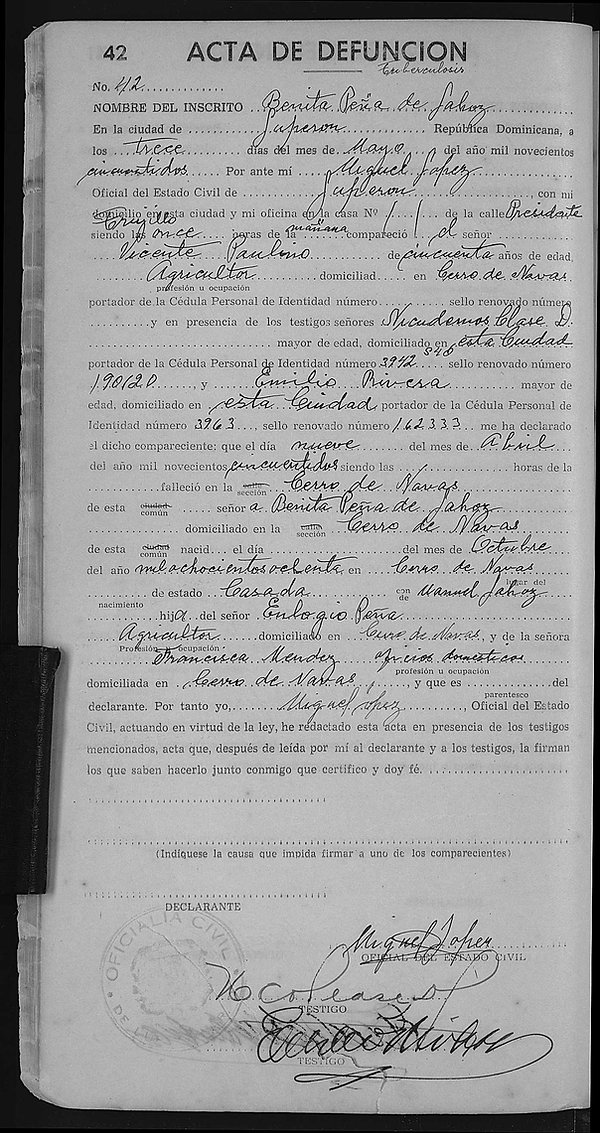 42 ACTA DE DEFUNCION
Tuberculosis
No. 42
NOMBRE DEL INSCRITO Benita Peña de Jahoz
En la ciudad de Luperon República Dominicana, a
los trece días del mes de Mayo del año mil novecientos
cincuentidos Por ante mí Miguel Lopez
Oficial del Estado Civil de Luperon, con mi
domicilio en esta ciudad y mi oficina en la casa Nº / de la calle Presidente
Trujillo
siendo las once horas de la mañana compareció el señor
Vicente Paulino de cincuenta años de edad,
Agricultor domiciliad en Cerro de Navas
profesión u ocupación
portador de la Cédula Personal de Identidad número sello renovado número
y en presencia de los testigos señores Nicudemos Clase D.
mayor de edad, domiciliado en esta Ciudad
portador de la Cédula Personal de Identidad número 3942 sello renovado número
848
190120, y Emilio Rivera mayor de
edad, domiciliado en esta Ciudad portador de la Cédula Personal de
Identidad número 3963, sello renovado número 162333 me ha declarado
el dicho compareciente: que el día nueve del mes de Abril
del año mil novecientos cincuentidos siendo las / horas de la
falleció en la calle sección Cerro de Navas
de esta ciudad común señora Benita Peña de Jahoz
domiciliado en la calle sección Cerro de Navas
de esta ciudad común nacid el día del mes de Octubre
del año mil ochocientos ochenta en Cerro de Navas
lugar del
nacimiento
de estado Casada con de Manuel Jahoz
hija del señor Eulogio Peña
Agricultor domiciliado en Cerro de Navas, y de la señora
Profesión u ocupación
Francisca Mendez oficios domesticos
profesión u ocupación
domiciliada en Cerro de Navas, y que es del
parentesco
declarante. Por tanto yo, Miguel Lopez, Oficial del Estado
Civil, actuando en virtud de la ley, he redactado esta acta en presencia de los testigos
mencionados, acta que, después de leída por mí al declarante y a los testigos, la firman
los que saben hacerlo junto conmigo que certifico y doy fé.
(Indíquese la causa que impida firmar a uno de los comparecientes)
DECLARANTE
Miguel Lopez
OFICIAL DEL ESTADO CIVIL
OFICIALIA CIVIL
TESTIGO
TESTIGO